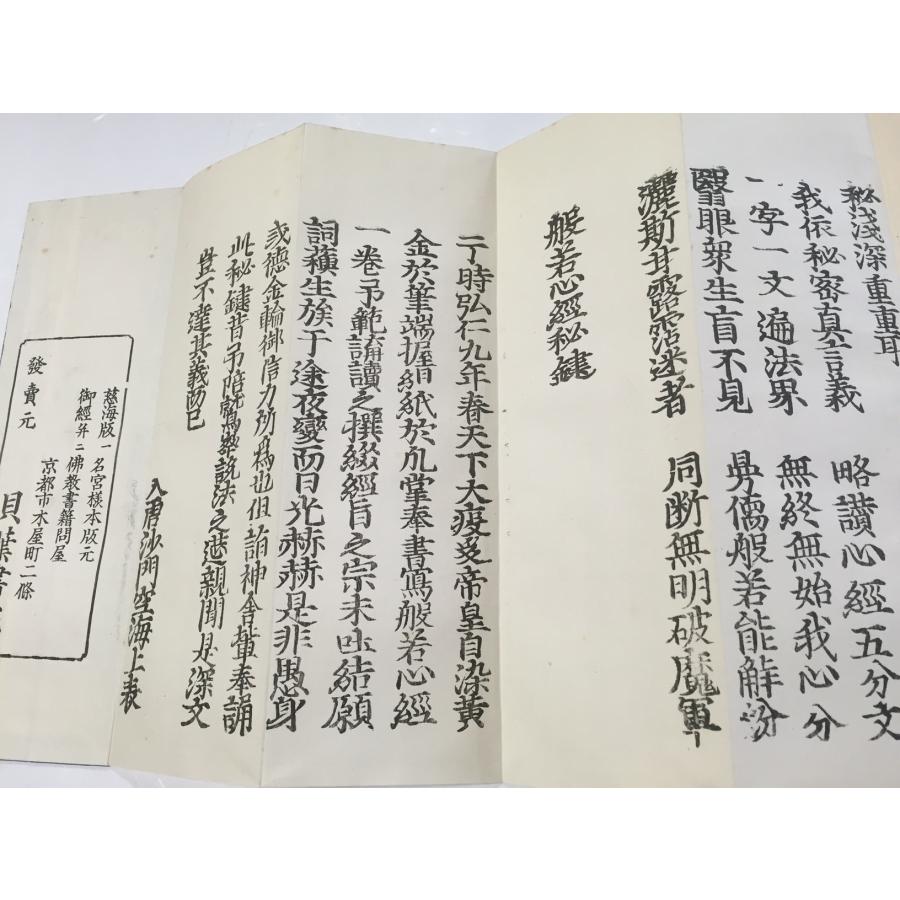 秘淺深重重耳　略讃心經五分文
我依秘密真言義　無終無始我心分
一字一文遍法界　吳儒般若能解紛
翳眼衆生盲不見　同斷無明破魔軍
灑斯甘露霑迷者
般若心經秘鍵
于時弘仁九年春天下大疫爰帝皇自染黄
金於筆端握紺紙於爪掌奉書寫般若心經
一卷予範講讀之撰綴經旨之宗未吐結願
詞蘓生族于途夜變而日光赫赫是非愚身
戒德金輪御信力所爲也但詣神舍輩奉誦
此秘鍵昔予陪鷲峯說法之莚親聞是深文
豈不達其義而已
入唐沙門空海上表
慈海版一名宮様本版元
御經并ニ佛教書籍問屋
京都市木屋町二條
發賣元　貝葉書